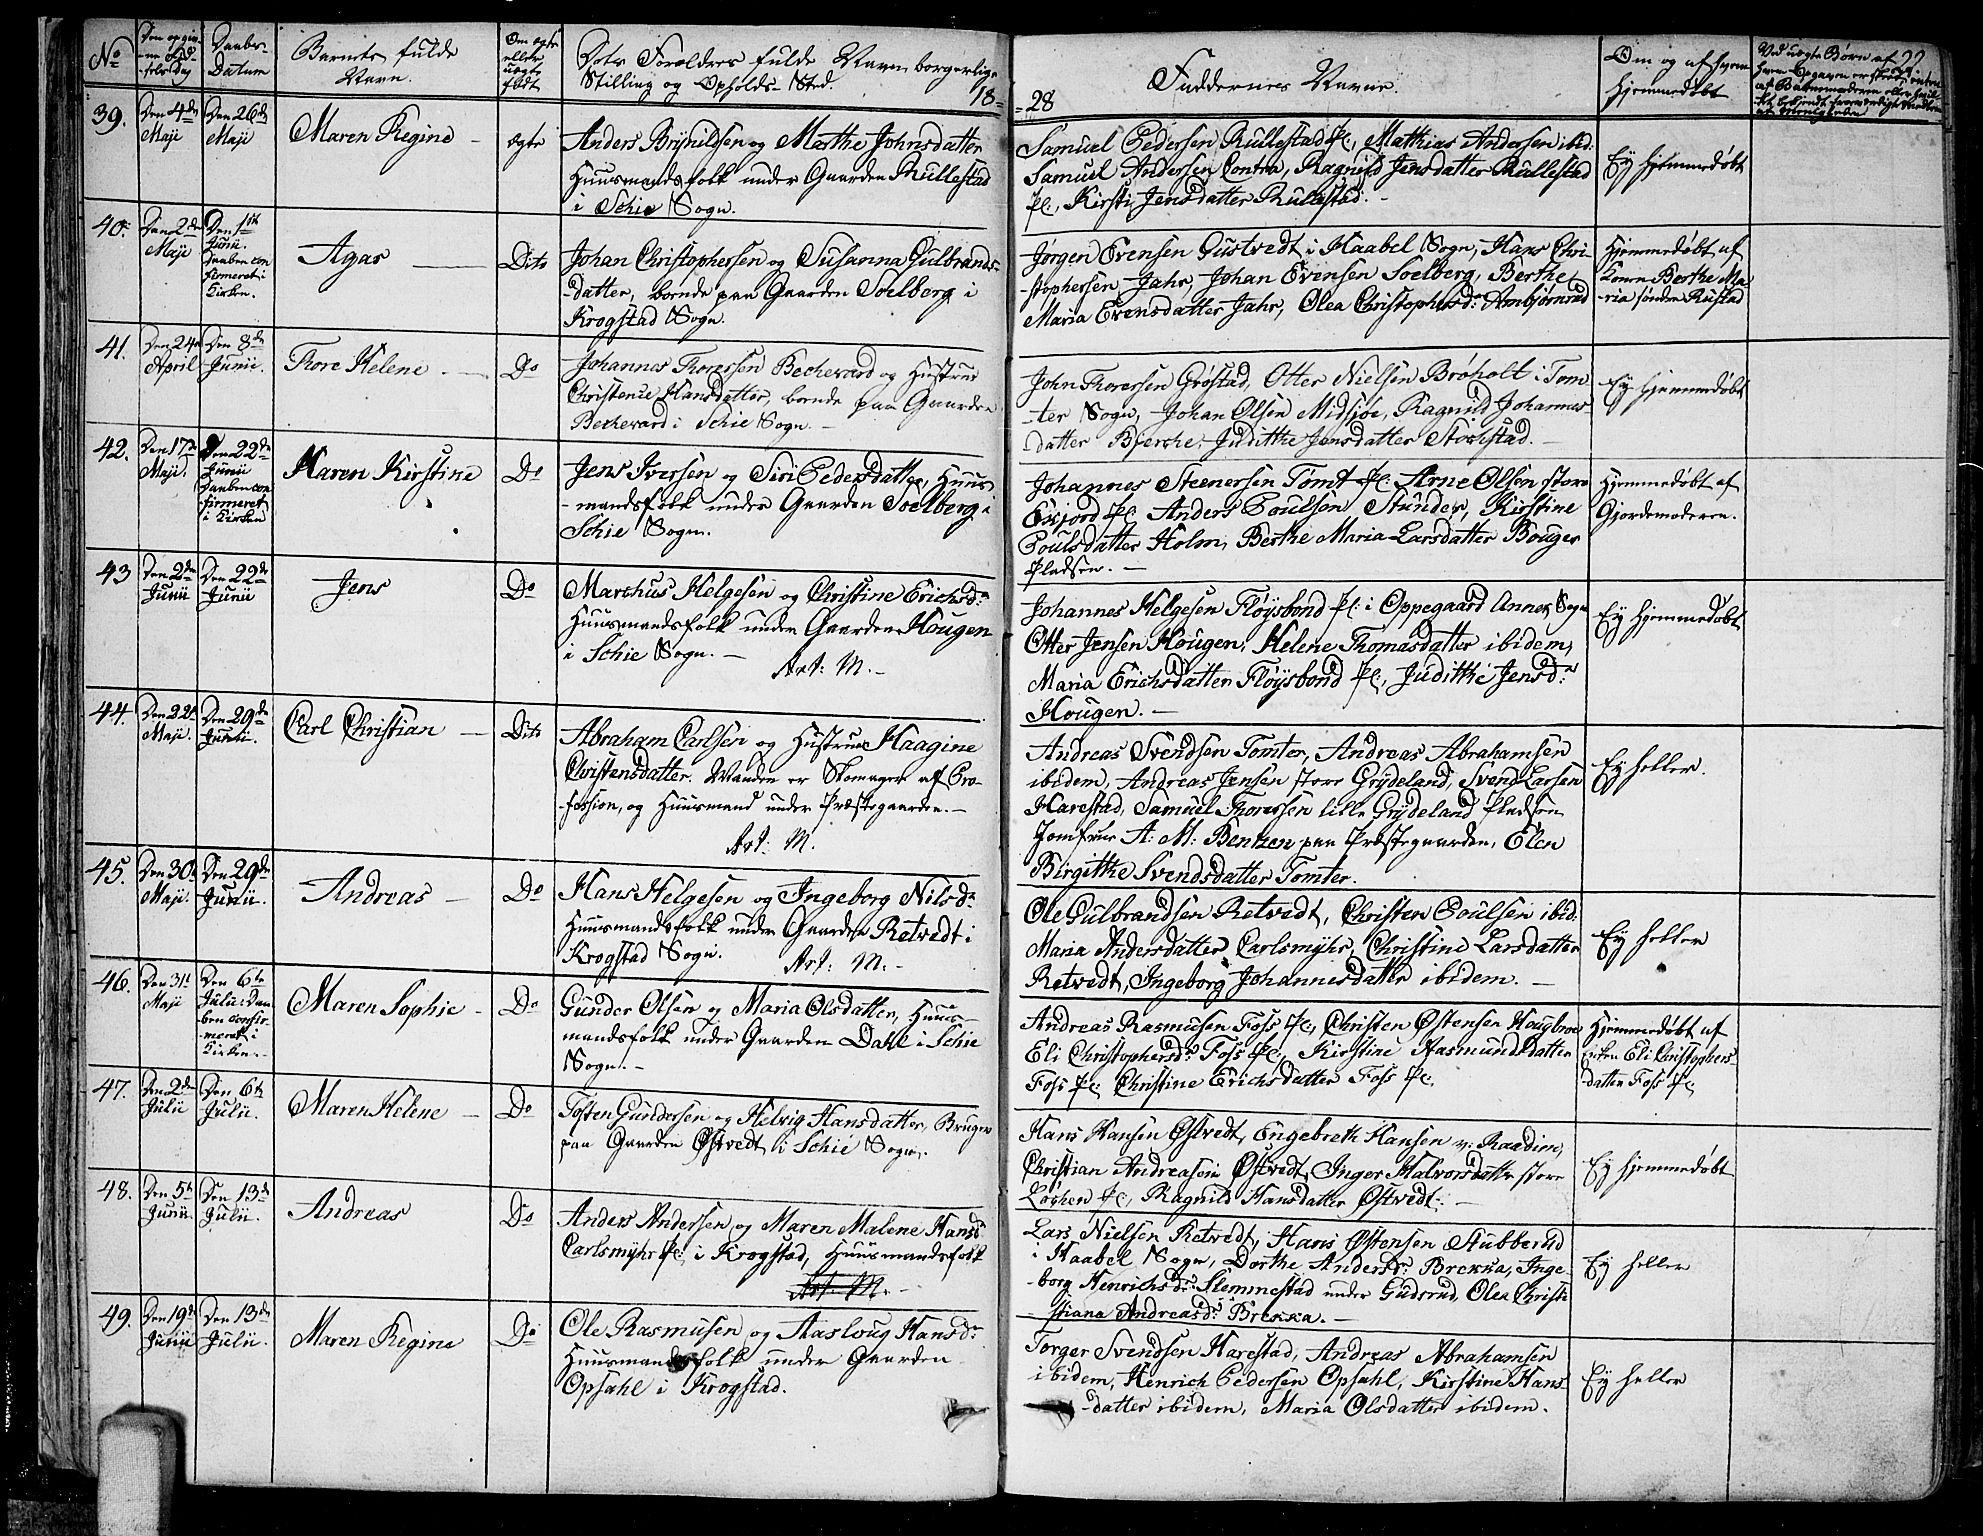 No
Den opgivne Fødselsdag
Daabs-Datum
Barnets fulde Navn.
Om ægte eller uægte født
Dets Forældres fulde Navn, borgerlige
Stilling og Opholds-Sted.
18=
=28
Faddernes Navne.
Om og af hvem
hjemmedøbt
Ved uægte Børn af
22
39.
Den 4de
Maji
Den 26de
Maji
Maren Regine -
ægte
Anders Brynildsen og Marthe Johnsdatter
Huusmandsfolk under Gaarden Rullestad
i Schie Sogn.
Samuel Pedersen Rullestad Pl:, Mathias Andersen ibid:
Samuel Andersen Contra, Ragnild Jensdatter Rullestad
Pl:, Kirsti Jensdatter Rullestad. -
Ey hjemmedøbt
40.
Den 2de
Maji
Den 1ste
Junii.
Daaben con
firmeret i
Kirken.
Agas
Dito
Johan Christophersen og Susanna Gulbrands-
-datter, boende paa Gaarden Soelberg i
Krogstad Sogn.
Jørgen Evensen Qustvedt i Haabel Sogn, Hans Chri-
-stophersen Jahr, Johan Evensen Soelberg, Berthe
Maria Evensdatter Jahr, Olea Christophersd: Ambjørnrud
Hjemmedøbt af
Konen Berthe Ma
-ria søndre Rustad
41.
Den 24de
April
Den 8de
Junii.
Thore Helene -
Do
Johannes Thoresen Bechevard og Hustrue
Christence Hansdatter, boende paa Gaarden
Bechevard i Schie Sogn. -
John Thoresen Grøstad, Otter Nielsen Brøholt i Tom
-ter Sogn, Johan Olsen Midsjøe, Ragnild Johannes
datter Bjerche, Judithe Jensdatter Stochstad. -
Ey hjemmedøbt
42.
Den 17de
Maji.
Den 22de
Junii
Daaben con
firmeret
i Kirken
Karen Kirstine
Do
Jens Iversen og Siri Pedersdatter, Huus
-mandsfolk under Gaarden Soelberg i
Schie Sogn.
Johannes Steenersen Tomt Pl: Arne Olsen store
Exjord Pl: Anders Poulsen Stunder, Kirstine
Poulsdatter Holm, Berthe Maria Larsdatter Bouger
Pladsen. -
Hjemmedøbt af
Gjordemoderen.
43
Den 2den
Junii
Den 22de
Junii
Jens
Do
Marchus Helgesen og Christine Erichsd:
Huusmandsfolk under Gaarden Hougen
i Schie Sogn. -
Art: M. -
Johannes Helgesen Fløysbond Pl: i Oppegaard Annex Sogn
Otter Jensen Hougen, Helene Thomasdatter ibidem,
Maria Erichsdatter Fløysbond Pl:, Judithe Jensd:
Hougen. -
Ey hjemmedøbt
44.
Den 22de
Maji.
Den 29de
Junii.
Carl Christian -
Dito
Abraham Carlsen og Hustrue Haagine
Christensdatter. Manden er Skomager af Pro-
-fession, og Huusmand under Præstegaarden. -
Art: M.
Andreas Svendsen Tomter, Andreas Abrahamsen
ibidem, Andreas Jensen store Grydeland, Svend Larsen
Harestad, Samuel Thoresen lille Grydeland Pladsen
Jomfrue A: M: Bentzen paa Præstegaarden, Elen
Birgitthe Svendsdatter Tomter.
Ey heller.
45.
Den 30te
Maji.
Den 29de
Junii.
Andreas -
Do
Hans Helgesen og Ingeborg Nilsd:
Huusmandsfolk under Gaarden Retvedt i
Krogstad Sogn.
Art: M. -
Ole Gulbrandsen Retvedt, Christen Poulsen ibid:
Maria Andersdatter Carlsmyhr, Christine Larsdatter
Retvedt, Ingeborg Johannesdatter ibidem. -
Ey heller
46.
Den 31te
Maji
Den 6te
Julii. Daa
ben confir-
-meret i
Kirken. -
Maren Sophie -
Do
Gunder Olsen og Maria Olsdatter, Huus
mandsfolk under Gaarden Dahl i Schie
Sogn. -
Andreas Rasmusen Foss Pl:, Christen Østensen Hougbroe
Eli Christophersd: Foss Pl:, Kirstine Aasmundsdatter
Foss Pl:, Christine Erichsdatter Foss Pl:.
Hjemmedøbt af
Enken Eli Christophers
-datter Foss Pl:
47.
Den 2de
Julii
Den 6te
Julii.
Maren Helene -
Do
Tosten Gundersen og Helvig Hansdatter, Bruger
paa Gaarden Østvedt i Schie Sogn.
Hans Hansen Østvedt, Engebreth Hansen v: Raadim,
Christian Andreasen Østvedt, Inger Halvorsdatter store
Løchen Pl:, Ragnild Hansdatter Østvedt. -
Ey hjemmedøbt
48.
Den 5te
Junii.
Den 13de
Julii.
Andreas
Do
Anders Andersen og Maren Malene Hansd:
Carlsmyhr Pl: i Krogstad, Huusmandsfolk
Art: M. -
Lars Nielsen Retvedt, Hans Østensen Stubberud
i Haabel Sogn, Dorthe Andersd: Brekka, Inge-
-borg Henrichsd: Slemmestad under Gudsrud, Olea Christi
-stiana Andreasd: Brekka. -
Ey heller
49.
Den 19de
Junii
Den 13de
Julii.
Maren Regine
Do
Ole Rasmusen og Aasloug Hansd:
Huusmandsfolk under Gaarden
Opsahl i Krogstad.
Torger Svendsen Harestad, Andreas Abrahamsen
ibidem, Henrich Pedersen Opsahl, Kirstine Hans-
-datter ibidem, Maria Olsdatter ibidem.
Ey heller